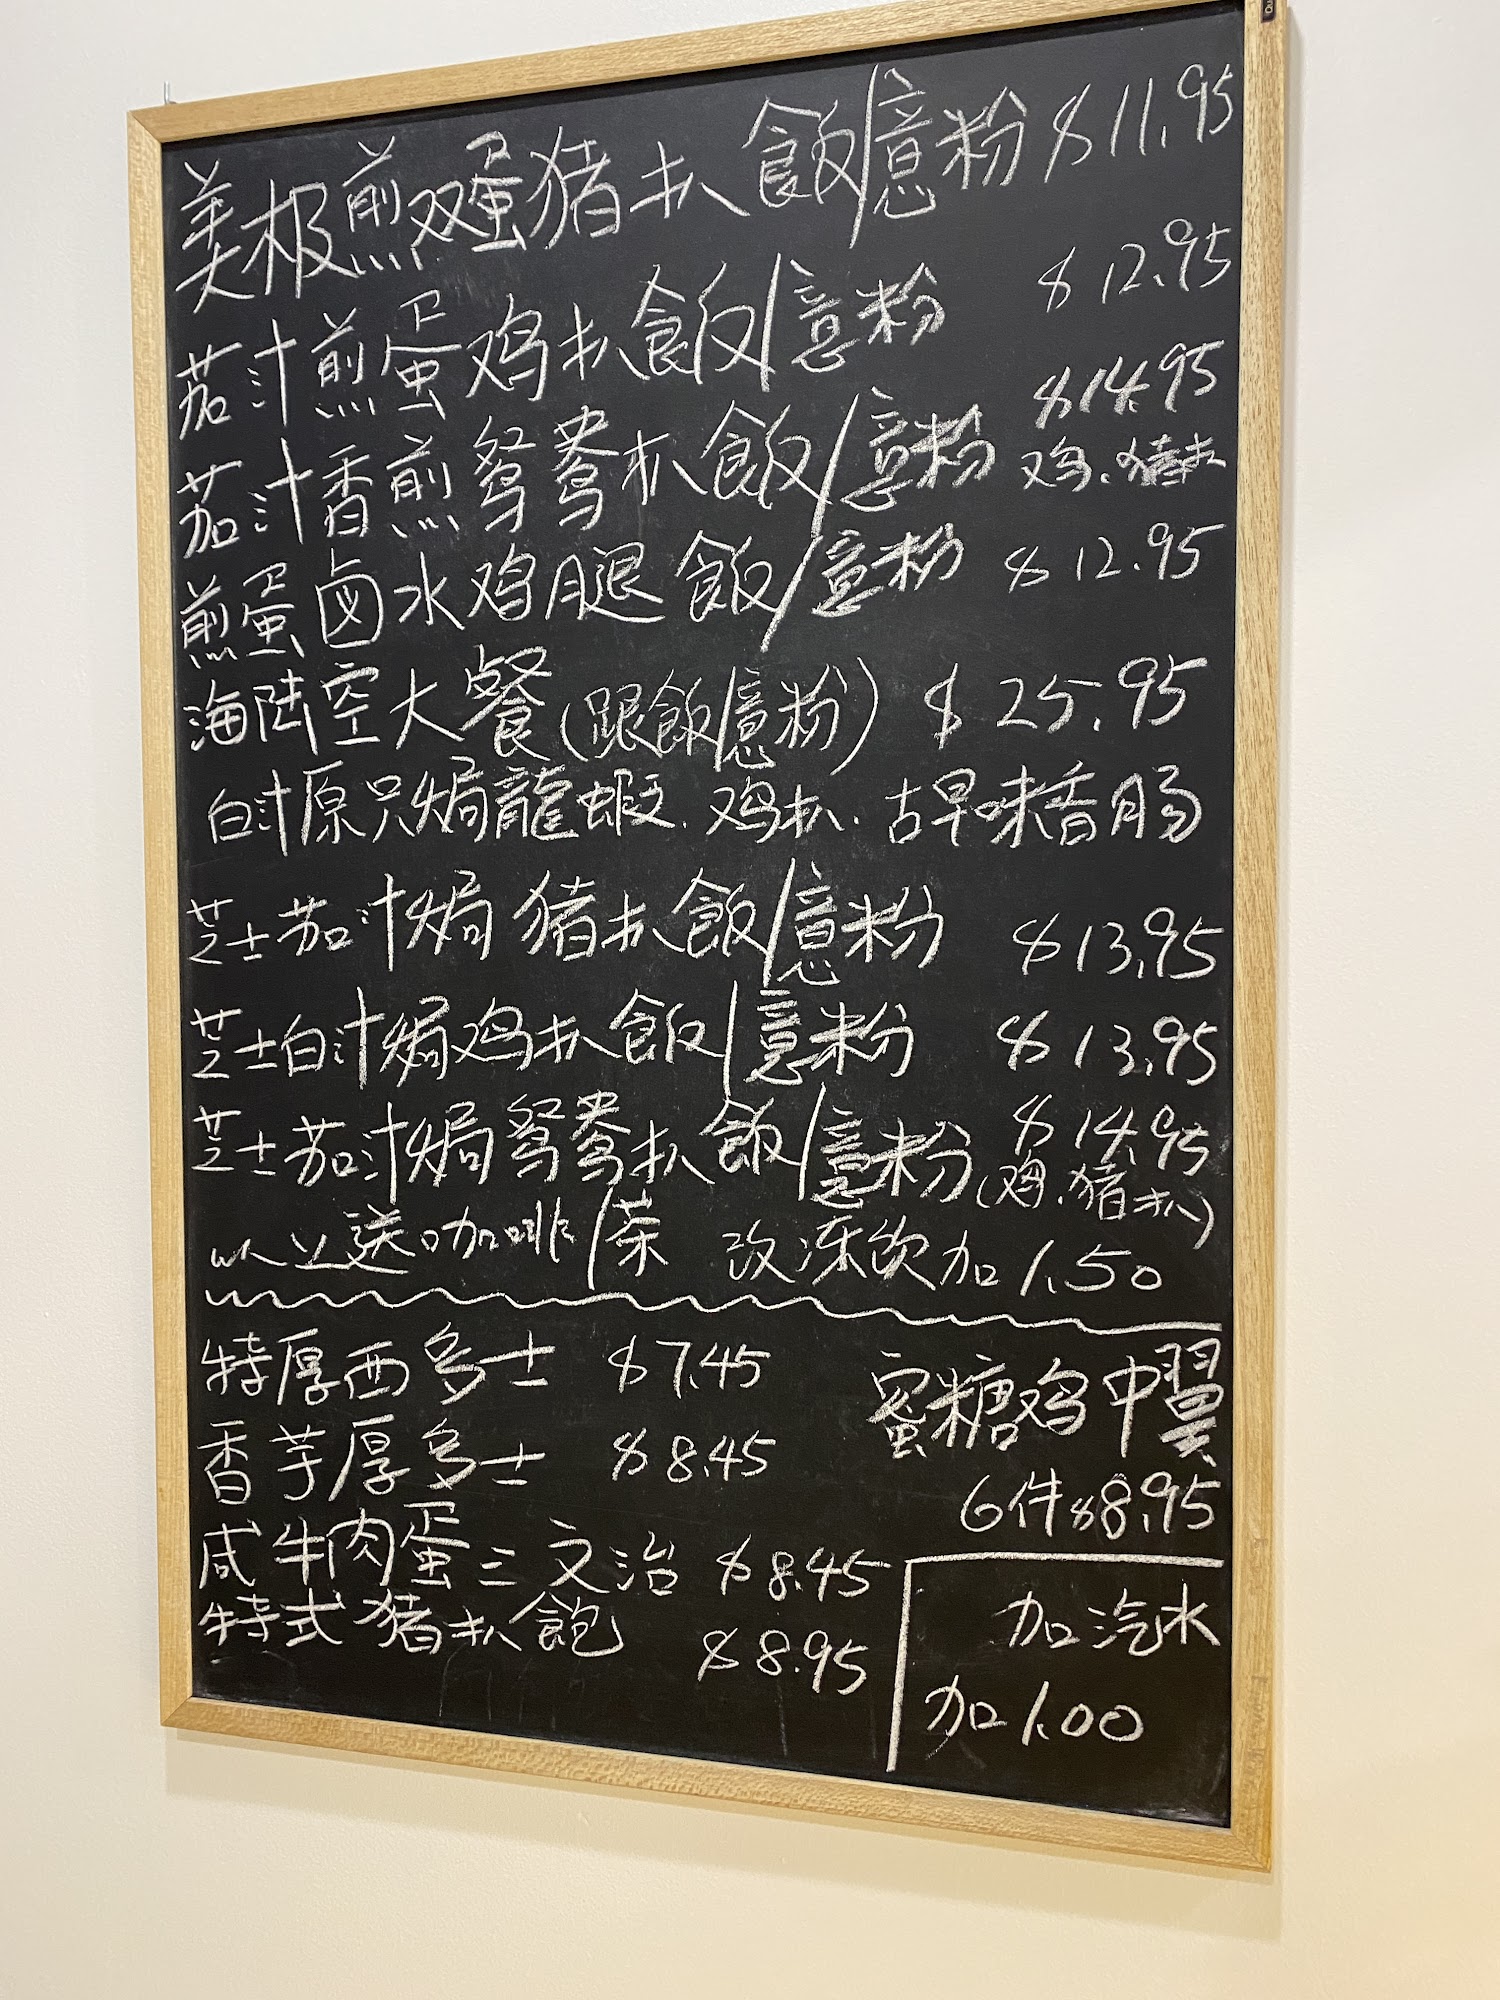 美极煎双蛋猪扒飯/意粉 $11.95
茄汁煎蛋鸡扒飯/意粉 $12.95
茄汁香煎鸳鸯扒飯/意粉 $14.95
鸡.猪扒
煎蛋卤水鸡腿飯/意粉 $12.95
海陆空大餐(跟飯/意粉) $25.95
白汁原只焗龍蝦.鸡扒.古早味香肠
芝士茄汁焗猪扒飯/意粉 $13.95
芝士白汁焗鸡扒飯/意粉 $13.95
芝士茄汁焗鸳鸯扒飯/意粉 $14.95
(鸡.猪扒)
以上送咖啡/茶 改冻饮加1.50
特厚西多士 $7.45
香芋厚多士 $8.45
咸牛肉蛋三文治 $8.45
特式猪扒飽 $8.95
蜜糖鸡中翼
6件$8.95
加汽水
加1.00